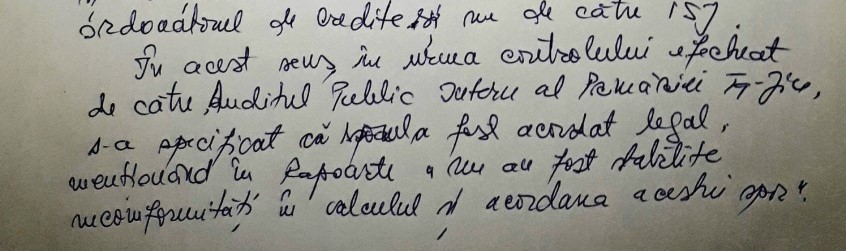 ordonatorul de credite și nu de către ISJ.
În acest sens, în urma controlului efectuat
de către Auditul Public Intern al Primăriei Tg-Jiu,
s-a specificat că a fost acordat legal,
menționând în Rapoarte "nu au fost stabilite
neconformități în calculul și acordarea acestui spor".